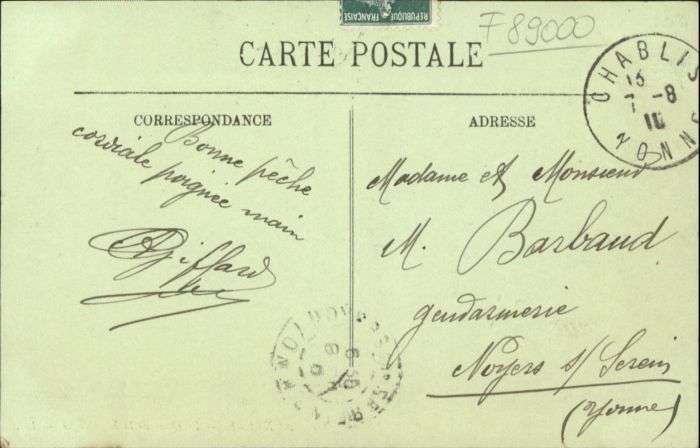 REPUBLIQUE FRANÇAISE
F 89000
CARTE POSTALE
CHABLIS
13
7 -8
10
YONNE
CORRESPONDANCE
Bonne pêche
cordiale poignée main
Giffard
ADRESSE
Madame et Monsieur
M. Barbaud
gendarmerie
Noyers s/ Serein
(Yonne)